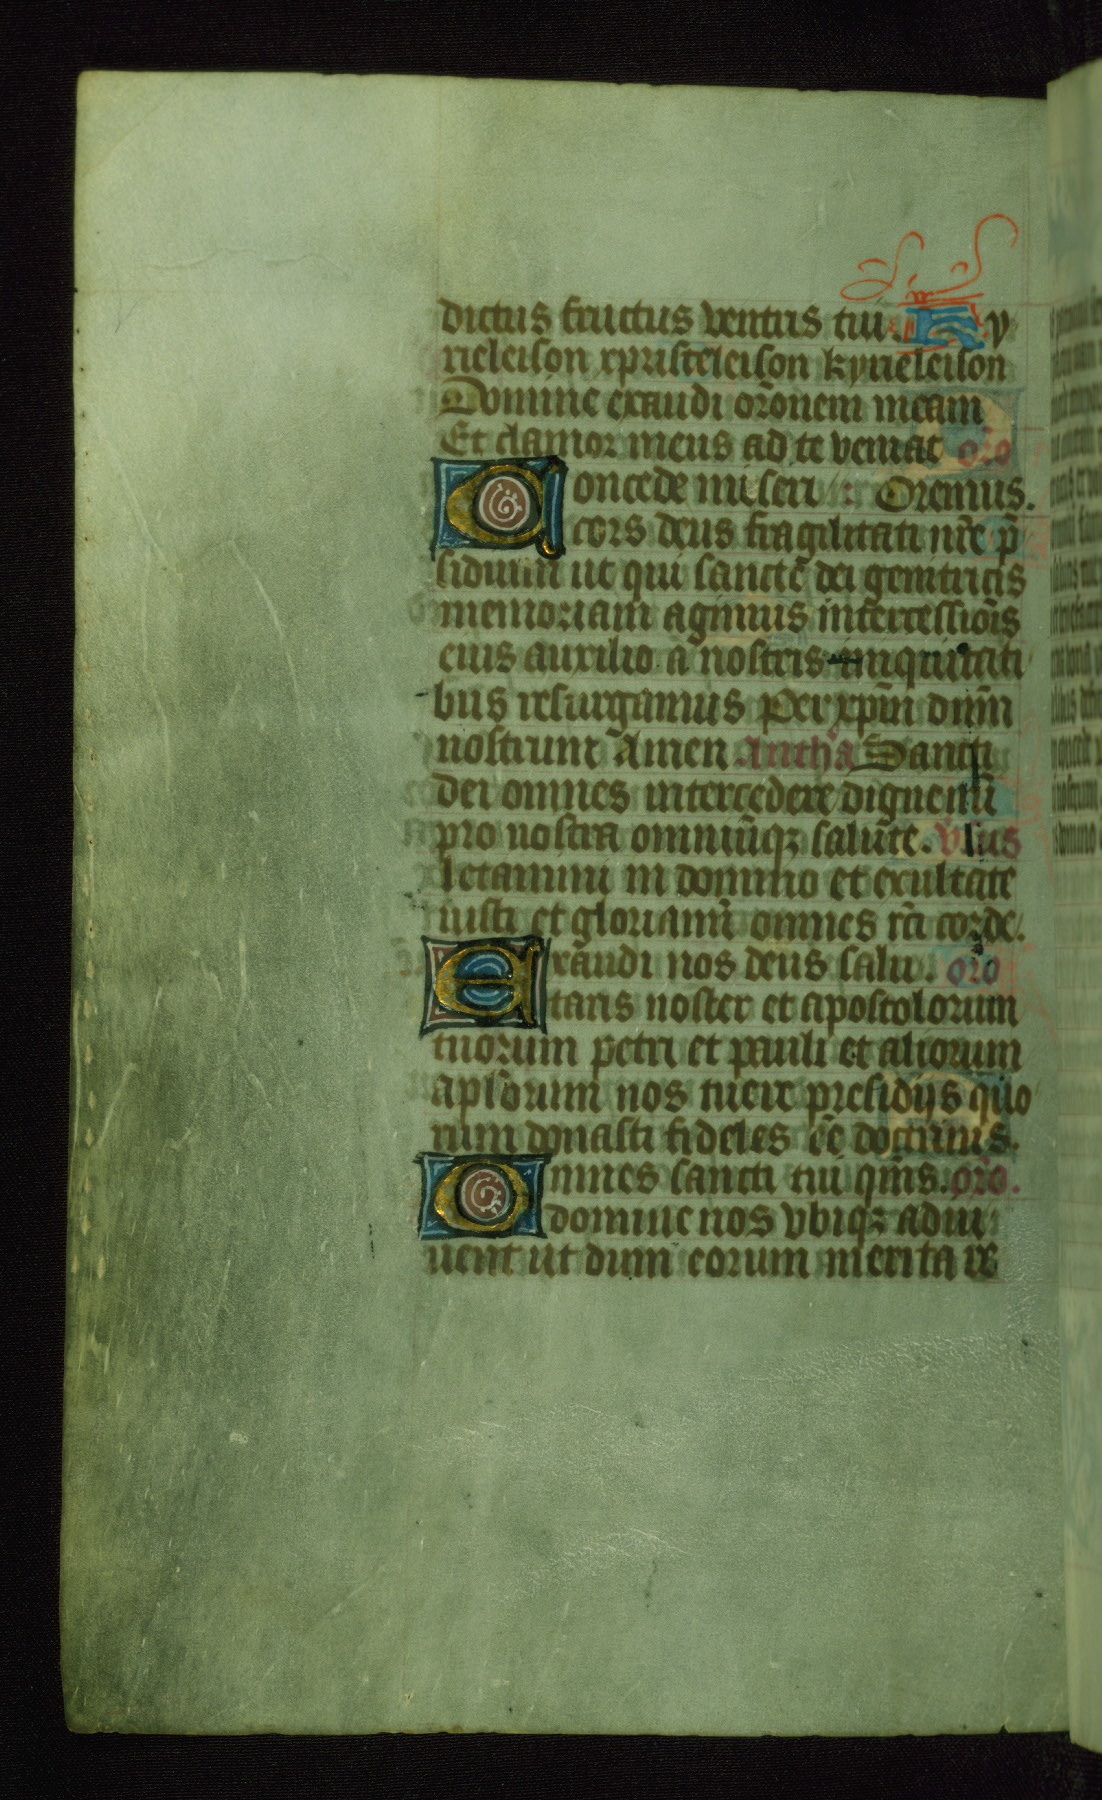 dictus fructus ventris tui. Ky
rieleison xpristeleison kyrieleison
Domine exaudi orōnem meam
Et clamor meus ad te veniat oro
Concede miseri : Oremus.
cors deus fragilitati nr̄e p̄
sidium ut qui sancte dei genitricis
memoriam agimus intercessiōis
eius auxilio a nostris iniquitati
bus resurgamus Per xp̄m dn̄m
nostrum Amen Antha Sancti
dei omnes intercedere dignemī
pro nostra omniūqꝫ salute. v̄sus
letamini in domino et exultate
iusti et gloriamī omnes rc̄i corde.
Exaudi nos deus salu. oro
taris noster et apostolorum
tuorum petri et pauli et aliorum
apl̄orum nos tuere presidijs quo
rum donasti fideles eē doctrinis.
Omnes sancti tui qm̄s. oro.
domine nos vbiqꝫ adiu
uent ut dum eorum merita re